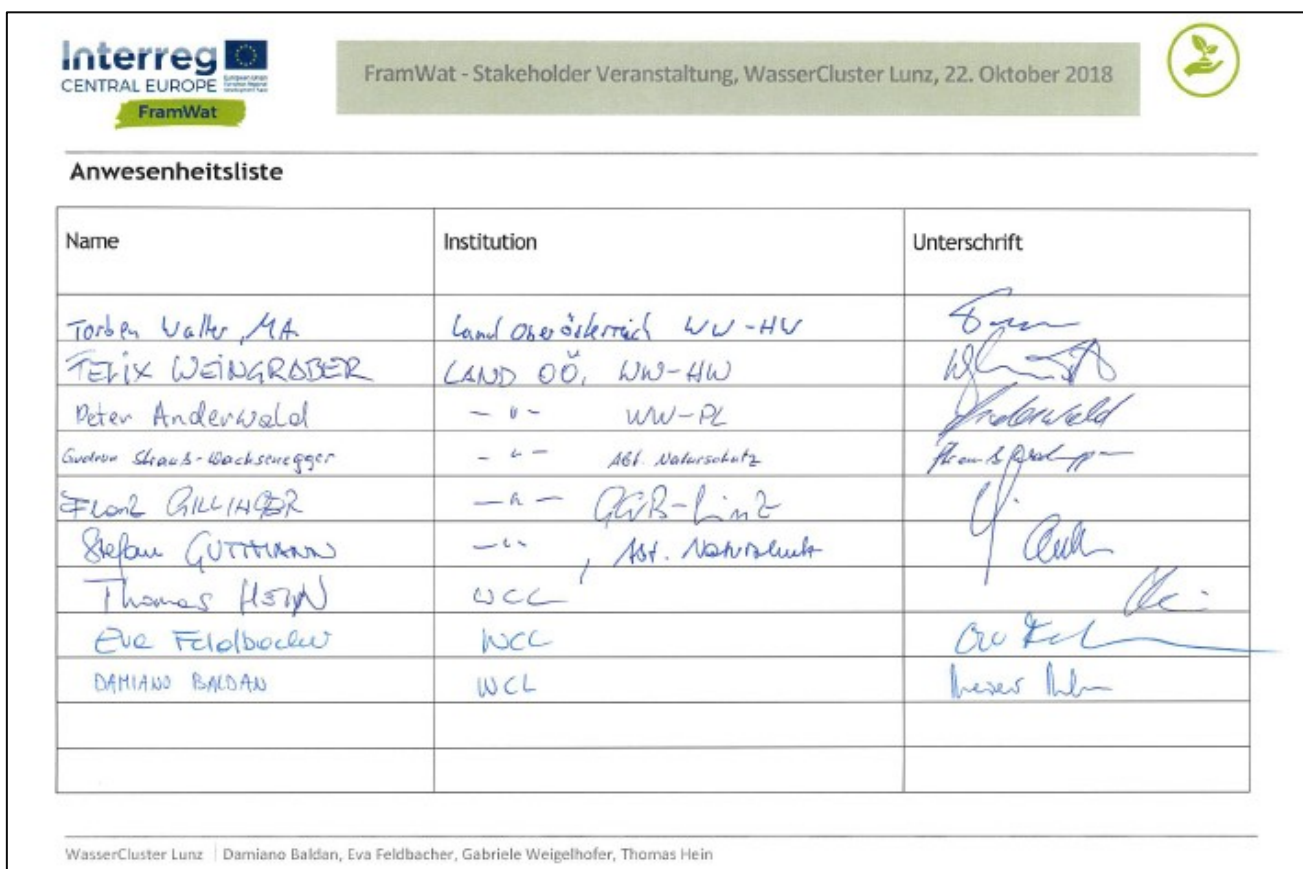 Interreg
CENTRAL EUROPE European Union European Regional Development Fund
FramWat
FramWat - Stakeholder Veranstaltung, WasserCluster Lunz, 22. Oktober 2018
Anwesenheitsliste
Name Institution Unterschrift
Torben Walter, MA Land Oberösterreich WW-HW
FELIX WEINGRABER LAND OÖ, WW-HW
Peter Anderwald - " - WW-PL Anderwald
Gudrun Strauß-Wachsenegger - " - Abt. Naturschutz
GILLINGER - " - GWB-Linz
Stefan GUTTMANN - " - , Abt. Naturschutz
Thomas HEIN WCL
Eva Feldbacher WCL
DAMIANO BALDAN WCL
WasserCluster Lunz | Damiano Baldan, Eva Feldbacher, Gabriele Weigelhofer, Thomas Hein